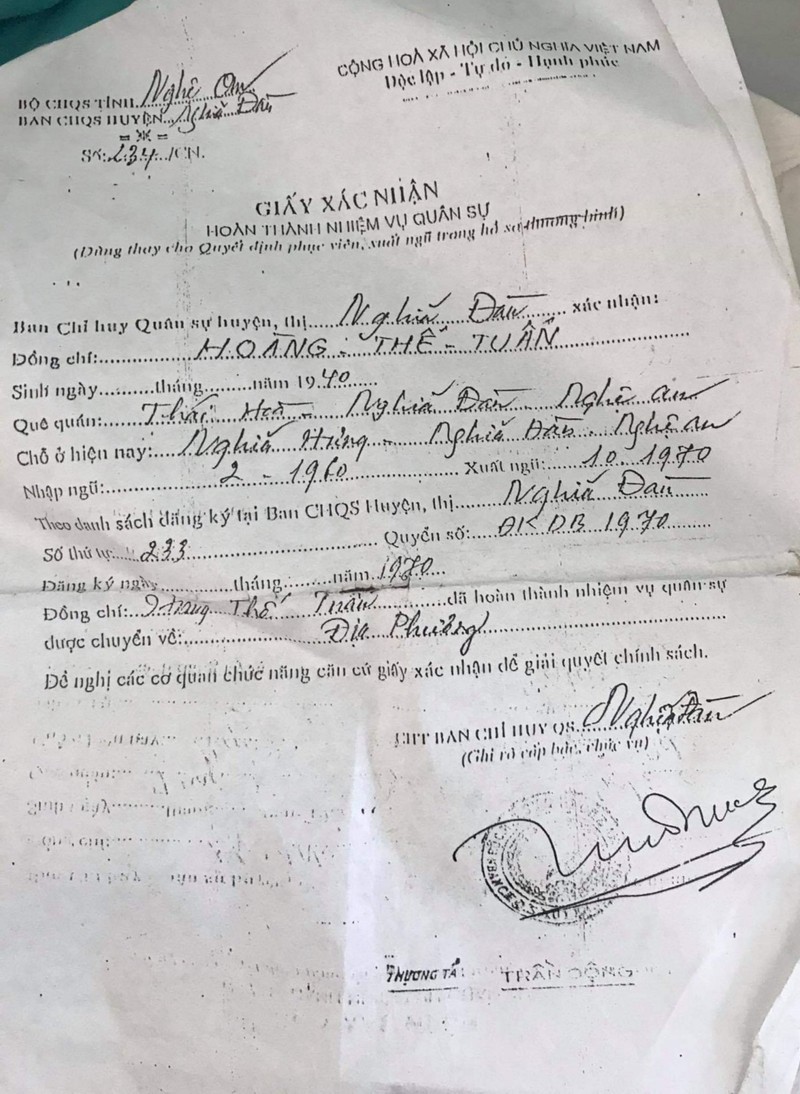 BỘ CHQS TỈNH Nghệ An
BAN CHQS HUYỆN Nghĩa Đàn
Số: 234 /CN.
CỘNG HOÀ XÃ HỘI CHỦ NGHĨA VIỆT NAM
Độc lập - Tự do - Hạnh phúc
GIẤY XÁC NHẬN
HOÀN THÀNH NHIỆM VỤ QUÂN SỰ
(Dùng thay cho Quyết định phục viên, xuất ngũ trong hồ sơ thương binh)
Ban Chỉ huy Quân sự huyện, thị Nghĩa Đàn xác nhận:
Đồng chí: HOÀNG - THẾ - TUẤN
Sinh ngày.........tháng.........năm 1940
Quê quán: Thái Hoà - Nghĩa Đàn - Nghệ an
Chỗ ở hiện nay: Nghĩa Hưng - Nghĩa Đàn - Nghệ an
Nhập ngũ: 2 - 1960 Xuất ngũ: 10. 1970
Theo danh sách đăng ký tại Ban CHQS Huyện, thị Nghĩa Đàn
Số thứ tự: 233 Quyển số: ĐKDB 1970
Đăng ký ngày.........tháng.........năm 1970
Đồng chí: Hoàng Thế Tuấn đã hoàn thành nhiệm vụ quân sự
được chuyển về: Địa Phương
Đề nghị các cơ quan chức năng căn cứ giấy xác nhận để giải quyết chính sách.
CHT BAN CHỈ HUY QS Nghĩa Đàn
(Ghi rõ cấp bậc, chức vụ)
THƯỢNG TÁ TRẦN DỘNG